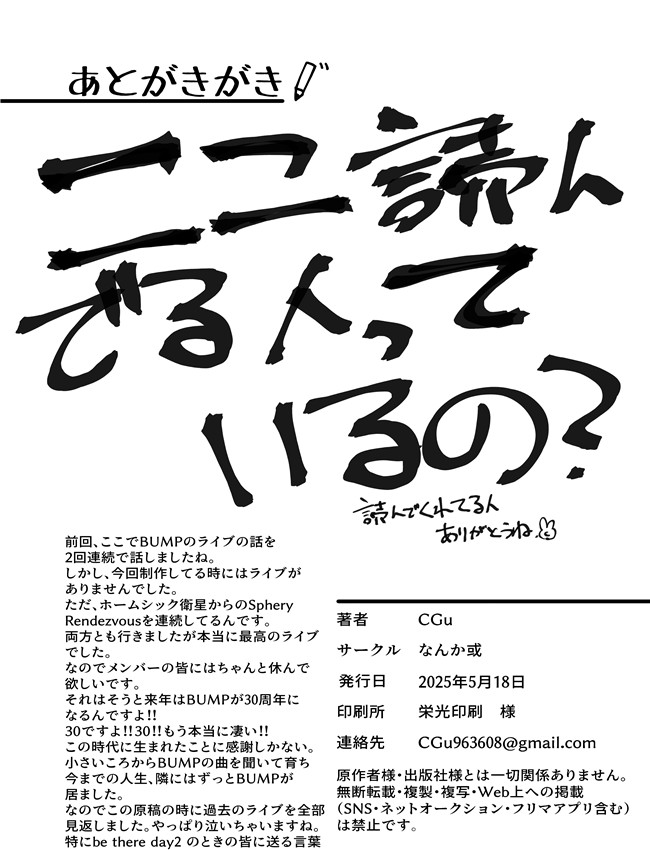 あとがきがき
ここ読ん
でる人って
いるの?
読んでくれてる人
ありがとうね
前回、ここでBUMPのライブの話を
2回連続で話しましたね。
しかし、今回制作してる時にはライブが
ありませんでした。
ただ、ホームシック衛星からのSphery
Rendezvousを連続してるんです。
両方とも行きましたが本当に最高のライブ
でした。
なのでメンバーの皆にはちゃんと休んで
欲しいです。
それはそうと来年はBUMPが30周年に
なるんですよ!!
30ですよ!!30!!もう本当に凄い!!
この時代に生まれたことに感謝しかない。
小さいころからBUMPの曲を聞いて育ち
今までの人生、隣にはずっとBUMPが
居ました。
なのでこの原稿の時に過去のライブを全部
見返しました。やっぱり泣いちゃいますね。
特にbe there day2 のときの皆に送る言葉
著者 CGu
サークル なんか或
発行日 2025年5月18日
印刷所 栄光印刷 様
連絡先 CGu963608@gmail.com
原作者様・出版社様とは一切関係ありません。
無断転載・複製・複写・Web上への掲載
(SNS・ネットオークション・フリマアプリ含む)
は禁止です。